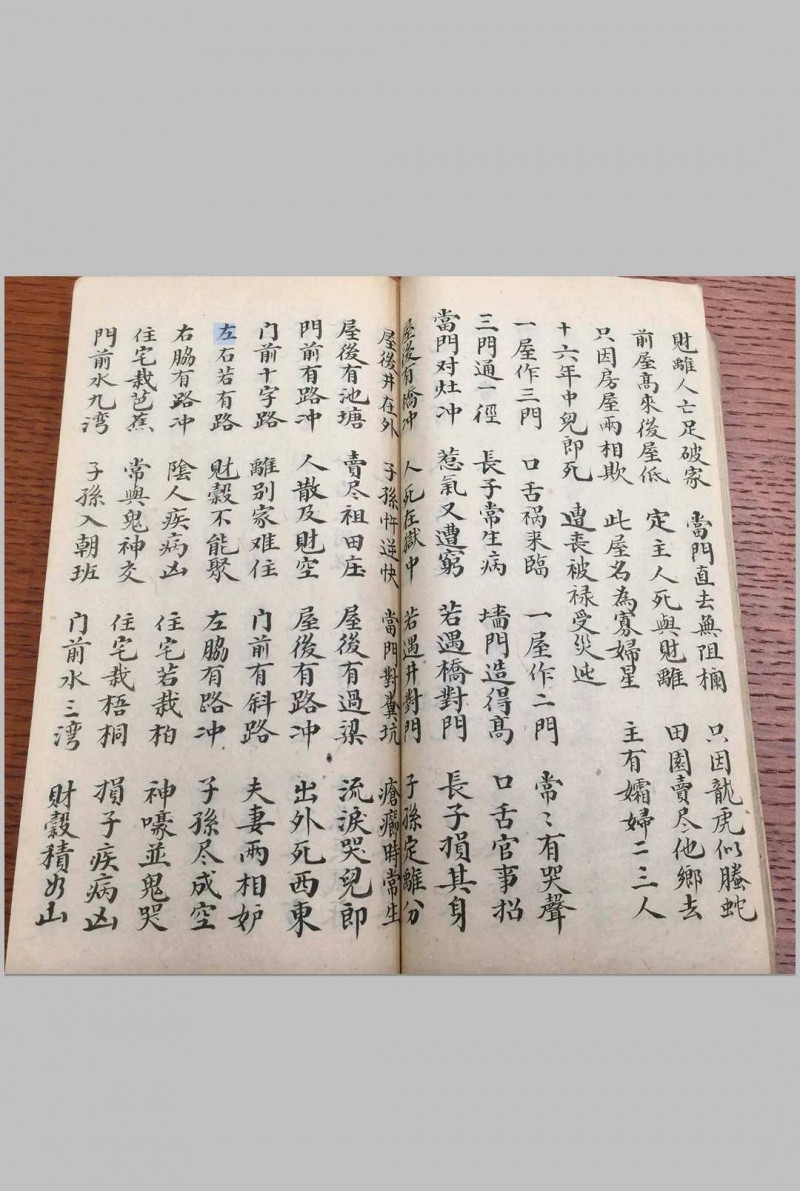 财離人亡足破家 當門直去無阻欄 只因龍虎似螣蛇
前屋高來後屋低 定主人死與财離 田園賣尽他鄉去
只因房屋兩相欺 此屋名為寡婦星 主有孀婦二三人
十六年中兒郎死 遭喪被禄受災迍
一屋作三門 口舌祸来臨 一屋作二門 常〻有哭聲
三門通一徑 長子常生病 墻門造得高 口舌官事招
當門对灶冲 惹氣又遭窮 若遇橋對門 長子損其身
屋後有橋冲 人死在獄中 若遇井對門 子孫定離分
屋後井在外 子孫忤逆快 當門對糞坑 時常生
屋後有池塘 賣尽祖田庄 屋後有過梁 流淚哭兒郎
門前有路冲 人散及財空 屋後有路冲 出外死西東
门前十字路 離别家难住 门前有斜路 夫妻兩相妒
左右若有路 財穀不能聚 左脇有路冲 子孫尽成空
右脇有路冲 陰人疾病凶 住宅若栽柏 神嚎並鬼哭
住宅栽芭蕉 常與鬼神交 住宅栽梧桐 損子疾病凶
門前水九湾 子孫入朝班 门前水三湾 財穀積如山